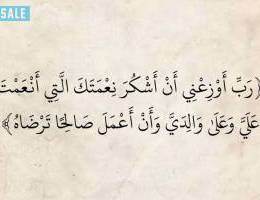 SALE
﴿رَبِّ أَوْزِعْنِي أَنْ أَشْكُرَ نِعْمَتَكَ الَّتِي أَنْعَمْتَ
عَلَيَّ وَعَلَىٰ وَالِدَيَّ وَأَنْ أَعْمَلَ صَالِحًا تَرْضَاهُ﴾